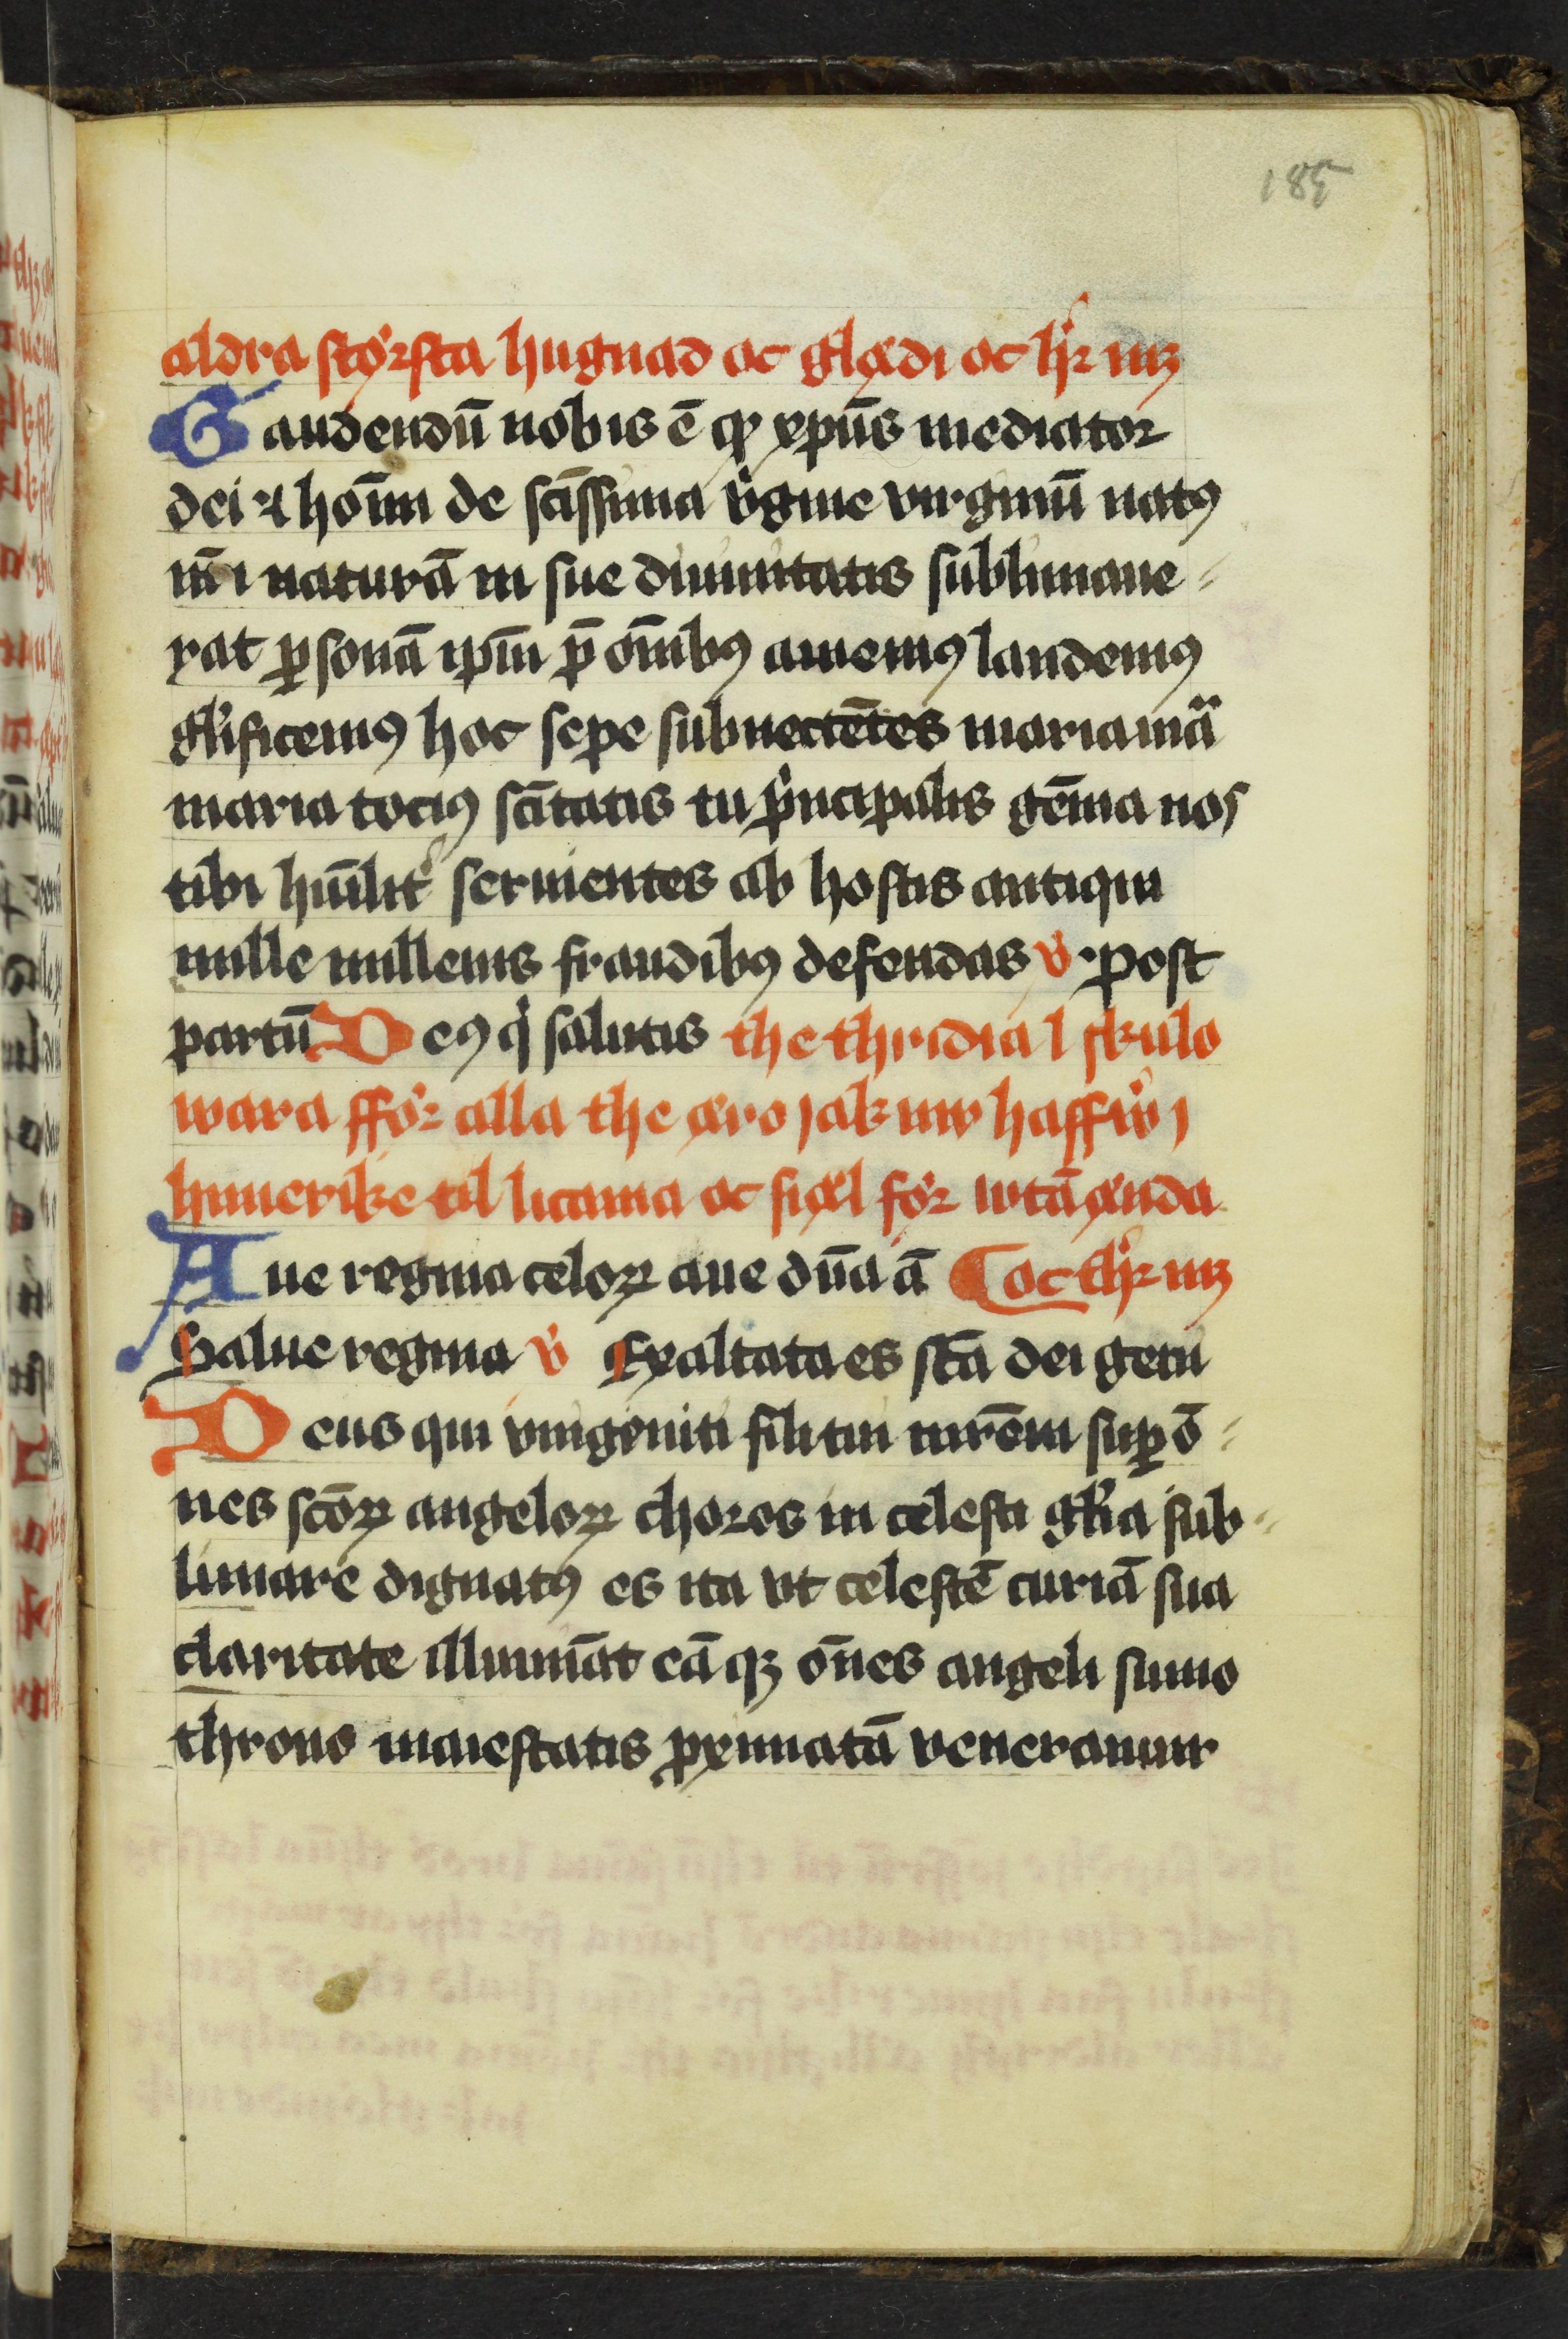 185
aldra størsta hugnad oc glædi oc
Gaudendū nobis ē xpūs mediator
dei ⁊ hoīm de scīssima v͛gine virginū natꝰ
nr̄i naturā in sue diuinitatis sublimaue⸗
rat ꝑsonā ip̄m p̄ om̄ibꝰ amemꝰ laudemꝰ
gl̄ificemꝰ hoc sepe subnectētes maria mr̄a
maria tociꝰ scītatis tu pͥncipalis gēma nos
tibi hūilit͛ seruientes ab hostis antiqui
mille millenis fraudibꝰ defendas v͛ post
partū Deꝰ qͥ salutis the thridia l skulo
wara ffør alla the æro jak nw haffw͛ j
himerike til licama oc siæl før wtā ænda
Aue regina celoꝝ aue dn̄a ā ¶ oc
Salue regina v͛ Exaltata es scā dei geni
Deus qui vnigeniti filii tui mr̄em suꝑ ō⸗
nes scōꝝ angeloꝝ choros in celesti gl̄ia sub⸗
limare dignatꝰ es ita vt celestē curiā sua
claritate illumināt eā qꝫ ōnes angeli sumo
throno maiestatis ꝓximatā venerantur